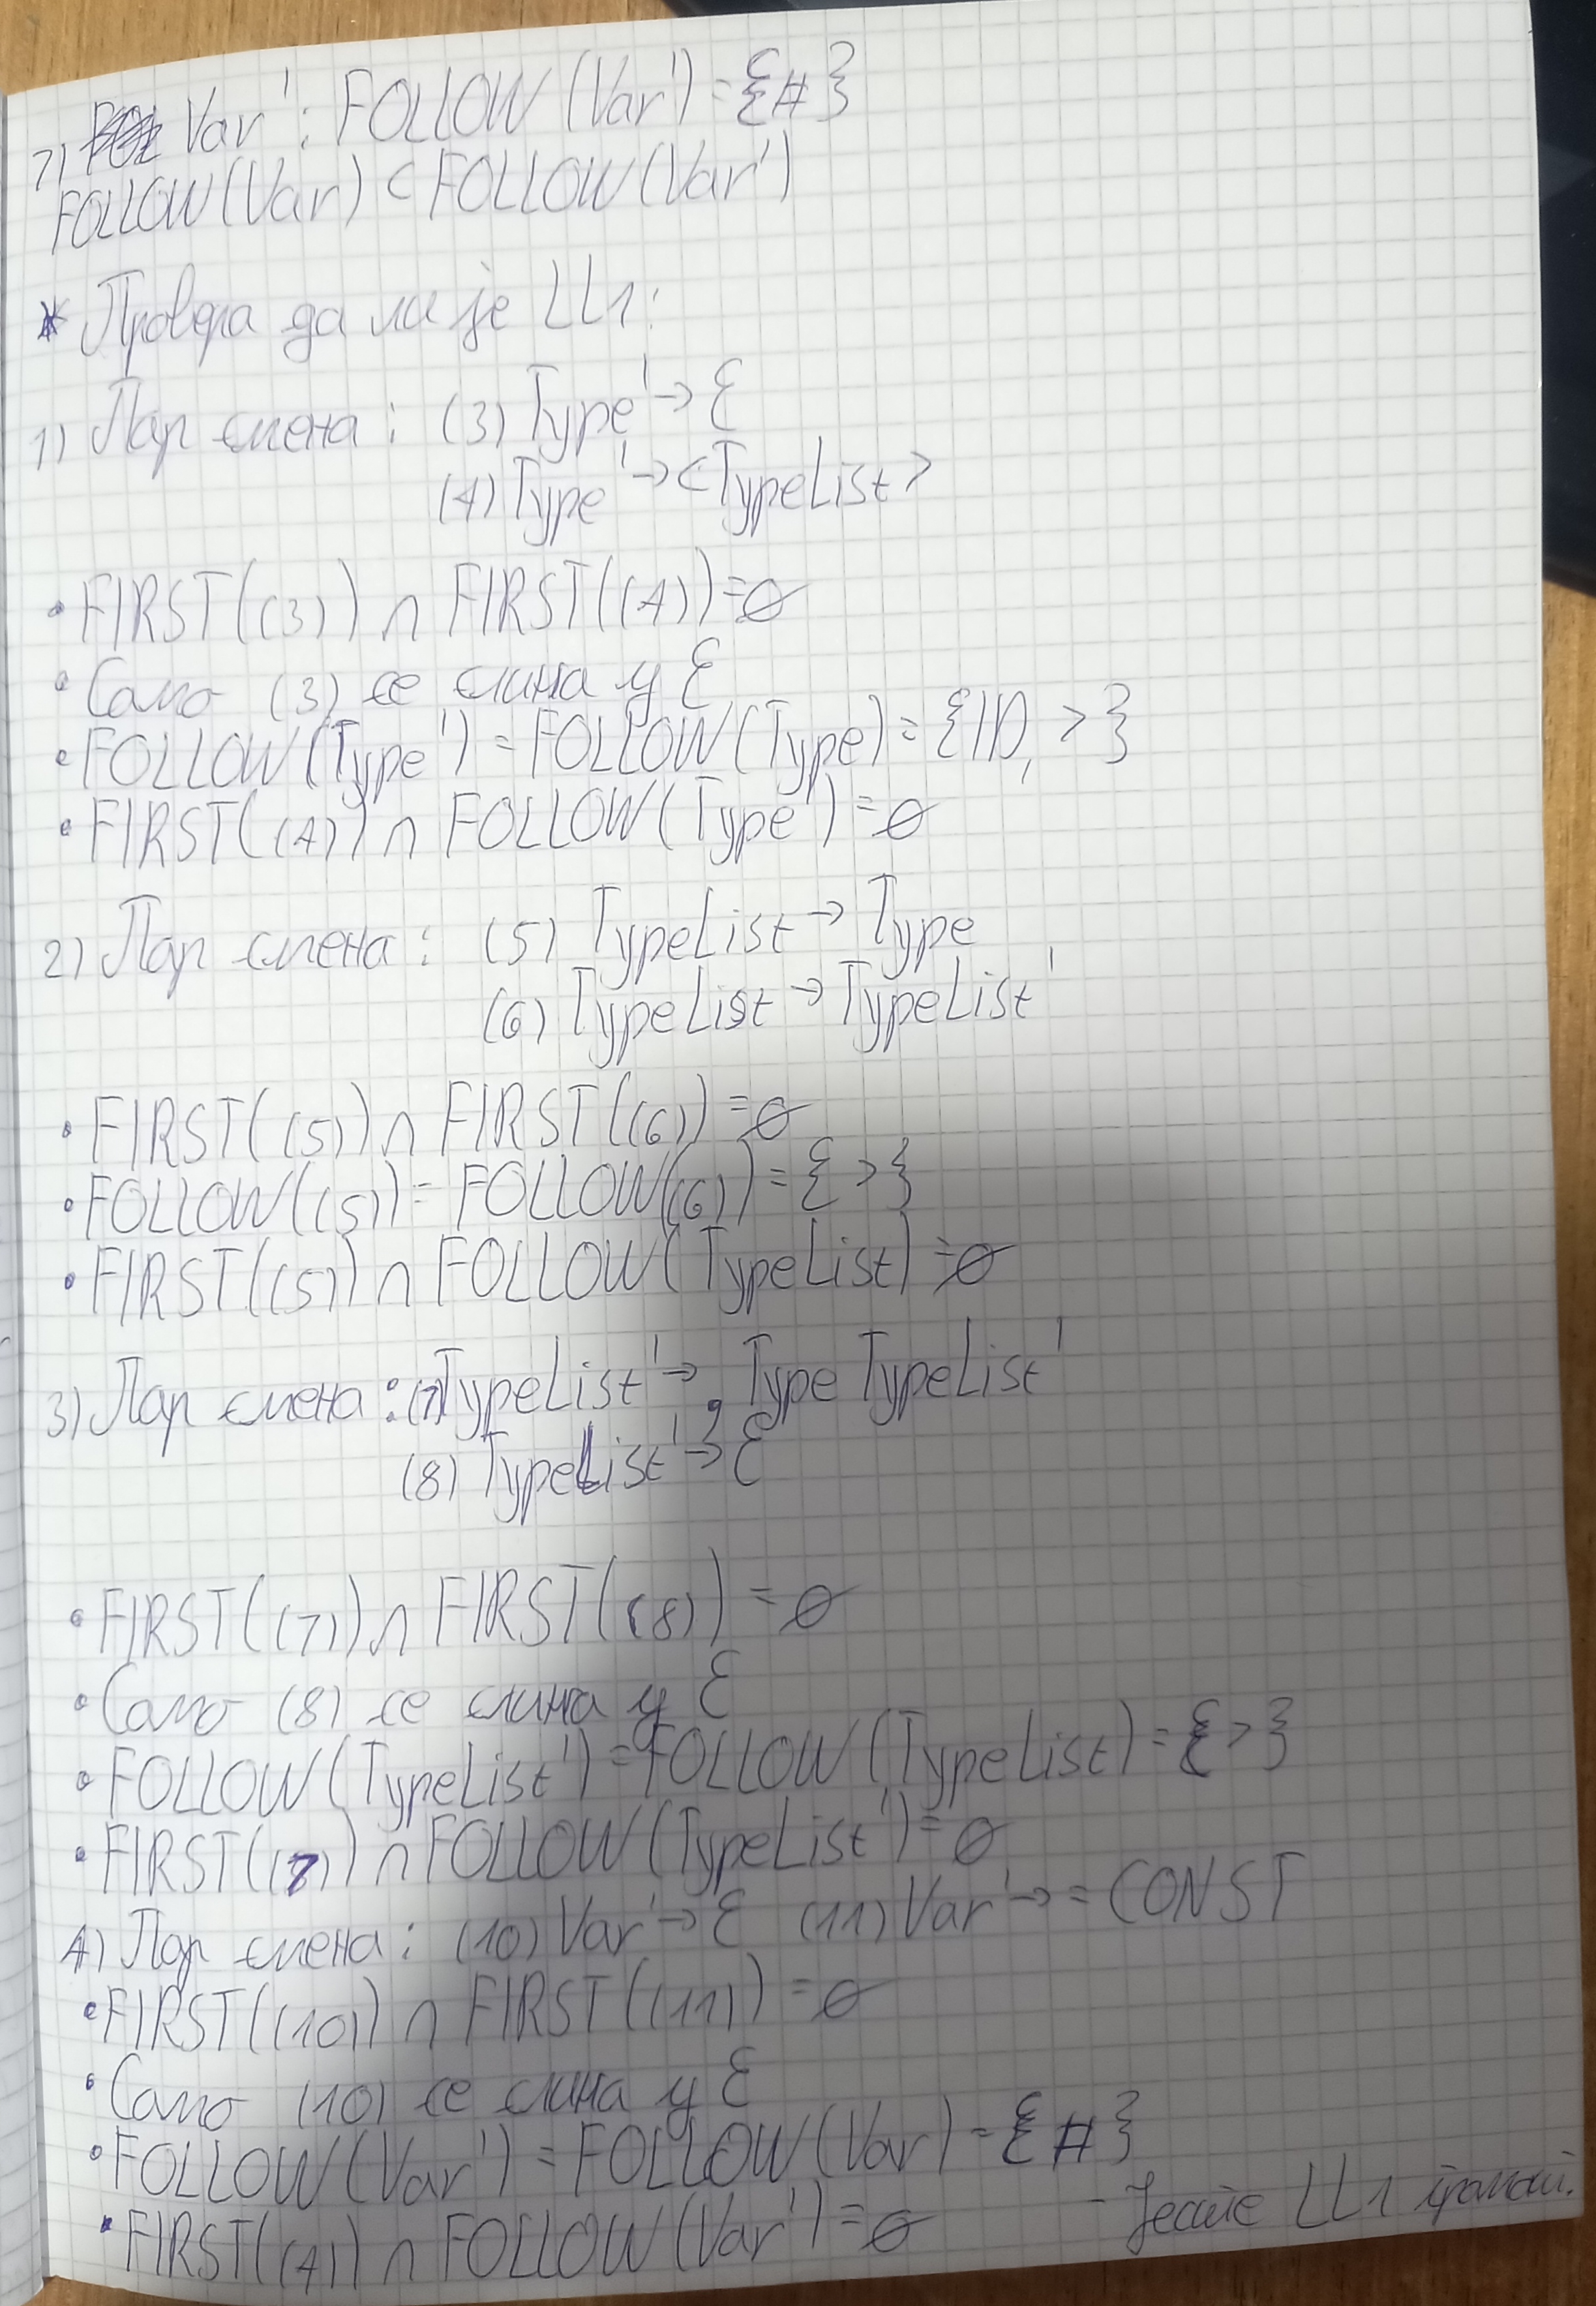 7) Var': FOLLOW(Var') = {#}
FOLLOW(Var) ⊂ FOLLOW(Var')
* Провера да ли је LL1:
1) Пар смена: (3) Type' → ε
(4) Type' → <TypeList>
• FIRST((3)) ∩ FIRST((4)) = ∅
• Само (3) се слика у ε
• FOLLOW(Type') = FOLLOW(Type) = {ID, >}
• FIRST((4)) ∩ FOLLOW(Type') = ∅
2) Пар смена: (5) TypeList → Type
(6) TypeList → TypeList'
• FIRST((5)) ∩ FIRST((6)) = ∅
• FOLLOW((5)) = FOLLOW((6)) = {>}
• FIRST((5)) ∩ FOLLOW(TypeList) = ∅
3) Пар смена: (7) TypeList' → , Type TypeList'
(8) TypeList' → ε
• FIRST((7)) ∩ FIRST((8)) = ∅
• Само (8) се слика у ε
• FOLLOW(TypeList') = FOLLOW(TypeList) = {>}
• FIRST((7)) ∩ FOLLOW(TypeList') = ∅
4) Пар смена: (10) Var' → ε (11) Var' → = CONST
• FIRST((10)) ∩ FIRST((11)) = ∅
• Само (10) се слика у ε
• FOLLOW(Var') = FOLLOW(Var) = {#}
• FIRST((4)) ∩ FOLLOW(Var') = ∅ - Јесте LL1 грамат.